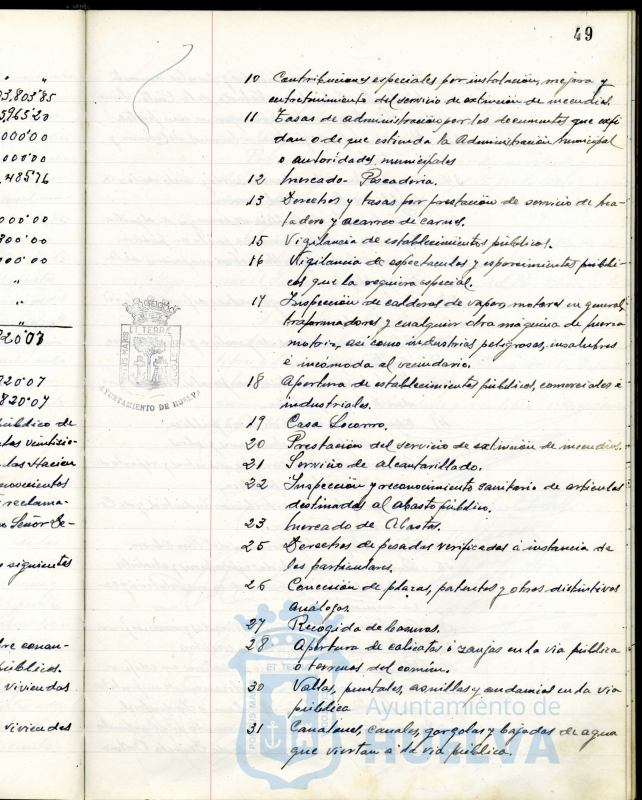 49
" "
03,803'85
5965'20
000'00
000'00
485'76
000'00
800'00
000'00
"
"
"
820'07
820'07
820'07
público de
las Hacien
novecientos
reclama-
Señor De-
siguientes
públicos.
viviendas
viviendas
10 Contribuciones especiales por instalación, mejora y
entretenimiento del servicio de extinción de incendios.
11 Tasas de administración por los documentos que expi
dan o de que entienda la Administración municipal
o autoridades municipales
12 Mercado- Pescadería.
13 Derechos y tasas por prestación de servicio de ma-
tadero y acarreo de carnes.
15 Vigilancia de establecimientos públicos.
16 Vigilancia de espectaculos y esparcimientos públi-
cos que la requiera especial.
17 Inspección de calderas de vapor, motores en general,
trasformadores y cualquier otra máquina de fuerza
motriz, asi como industrias peligrosas, insalubres
é incómoda al vecindario.
18 Apertura de establecimientos públicos, comerciales é
industriales.
19 Casa Socorro.
20 Prestación del servicio de extinción de incendios.
21 Servicio de alcantarillado.
22 Inspección y reconocimiento sanitario de articulos
destinados al abasto público.
23 Mercado de Abastos.
25 Derechos de pesadas verificadas á instancia de
los particulares.
26 Concesión de placas, patentes y otros distintivos
análogos.
27 Recogida de basuras.
28 Apertura de calicatas ó zanjas en la via pública
o terrenos del común.
30 Vallas, puntales, asnillas y andamios en la via
pública
31 Canalones, canales, gorgolas y bajadas de agua
que viertan á la via pública.
ET TERRÆ
PORTUS MARIS
CUSTODIA
AYUNTAMIENTO DE HUELVA
Ayuntamiento de
HUELVA